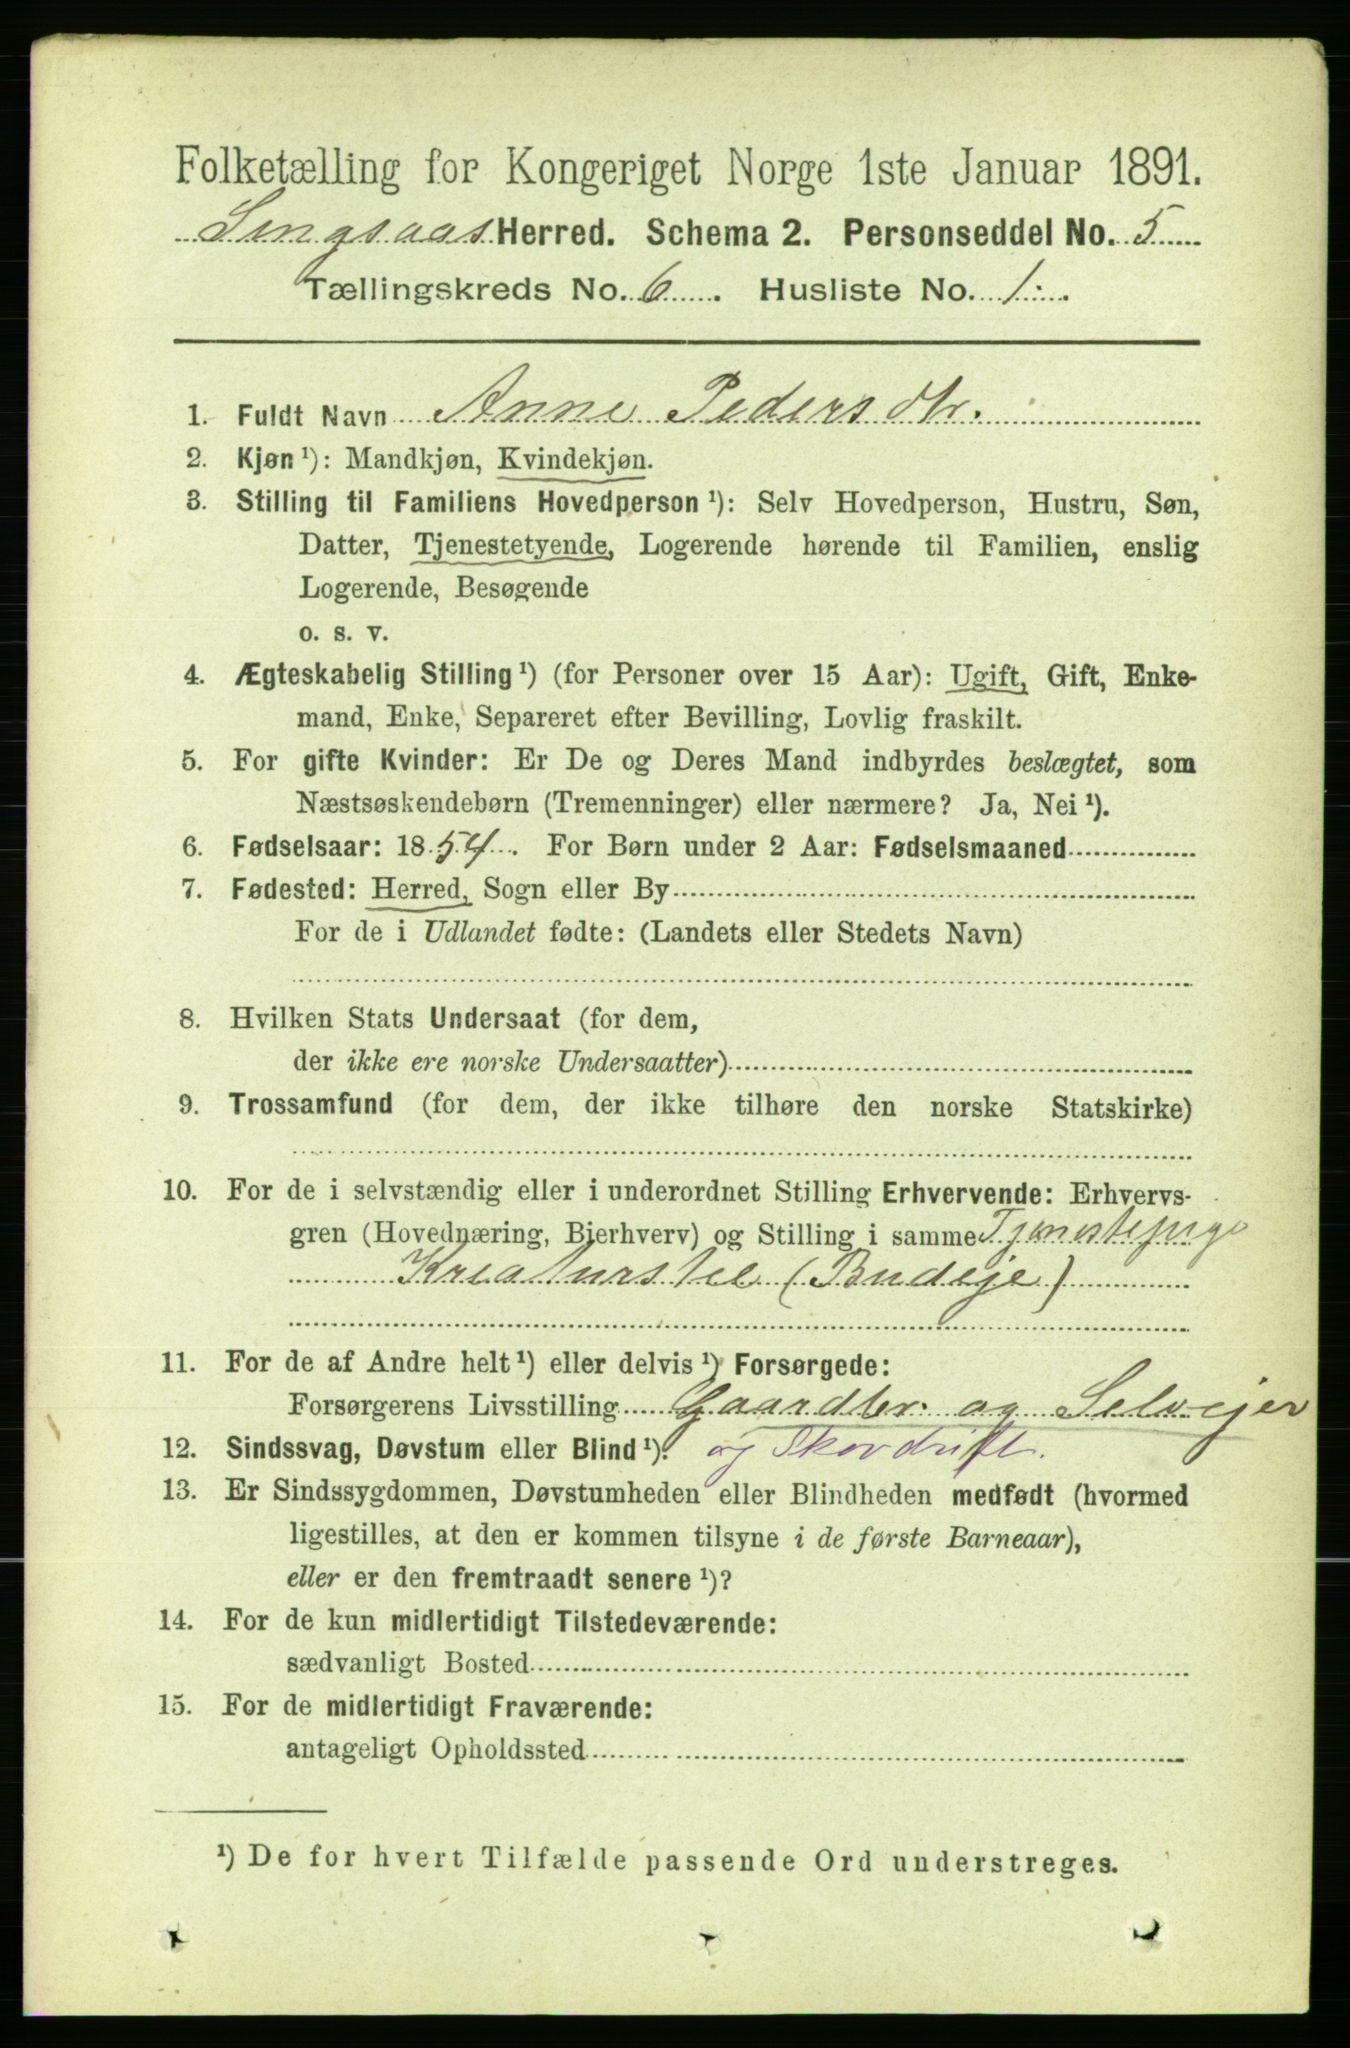 Folketælling for Kongeriget Norge 1ste Januar 1891.
Singsaas Herred. Schema 2. Personseddel No. 5
Tællingskreds No. 6. Husliste No. 1.
1. Fuldt Navn Anne Pedersdtr.
2. Kjøn ¹): Mandkjøn, Kvindekjøn.
3. Stilling til Familiens Hovedperson ¹): Selv Hovedperson, Hustru, Søn,
Datter, Tjenestetyende, Logerende hørende til Familien, enslig
Logerende, Besøgende
o. s. v.
4. Ægteskabelig Stilling ¹) (for Personer over 15 Aar): Ugift, Gift, Enke-
mand, Enke, Separeret efter Bevilling, Lovlig fraskilt.
5. For gifte Kvinder: Er De og Deres Mand indbyrdes beslægtet, som
Næstsøskendebørn (Tremenninger) eller nærmere? Ja, Nei ¹).
6. Fødselsaar: 1854. For Børn under 2 Aar: Fødselsmaaned
7. Fødested: Herred, Sogn eller By
For de i Udlandet fødte: (Landets eller Stedets Navn)
8. Hvilken Stats Undersaat (for dem,
der ikke ere norske Undersaatter)
9. Trossamfund (for dem, der ikke tilhøre den norske Statskirke)
10. For de i selvstændig eller i underordnet Stilling Erhvervende: Erhvervs-
gren (Hovednæring, Bierhverv) og Stilling i samme Tjenestepige
Kreaturstel (Budeje)
11. For de af Andre helt ¹) eller delvis ¹) Forsørgede:
Forsørgerens Livsstilling Gaardbr. og Selvejer
12. Sindssvag, Døvstum eller Blind ¹). og Skovdrift.
13. Er Sindssygdommen, Døvstumheden eller Blindheden medfødt (hvormed
ligestilles, at den er kommen tilsyne i de første Barneaar),
eller er den fremtraadt senere ¹)?
14. For de kun midlertidigt Tilstedeværende:
sædvanligt Bosted
15. For de midlertidigt Fraværende:
antageligt Opholdssted
¹) De for hvert Tilfælde passende Ord understreges.